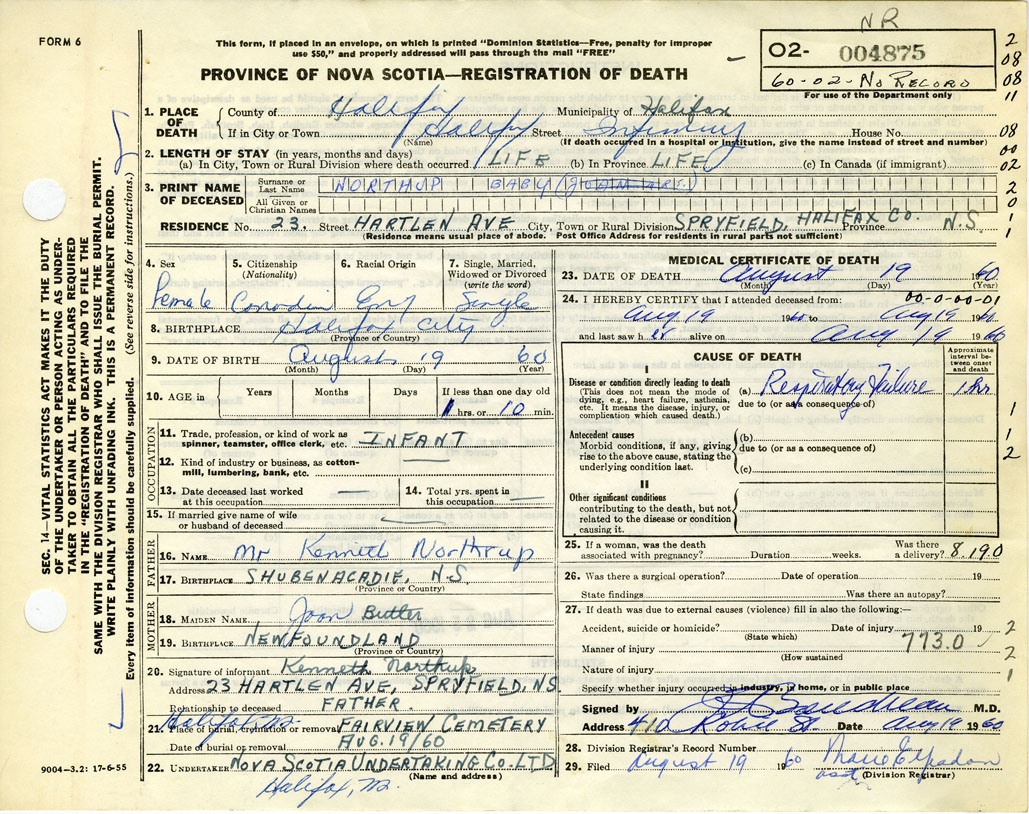 NR
FORM 6
This form, if placed in an envelope, on which is printed "Dominion Statistics—Free, penalty for improper
use $50," and properly addressed will pass through the mail "FREE"
O2- 004875
60-02-No RECORD
For use of the Department only
PROVINCE OF NOVA SCOTIA—REGISTRATION OF DEATH
2
08
08
11
08
00
02
2
0
1
1
1. PLACE OF DEATH
County of Halifax Municipality of Halifax
If in City or Town Halifax Street Infirmary House No.
(Name) (If death occurred in a hospital or institution, give the name instead of street and number)
2. LENGTH OF STAY (in years, months and days)
(a) In City, Town or Rural Division where death occurred LIFE (b) In Province LIFE (c) In Canada (if immigrant)
3. PRINT NAME OF DECEASED
Surname or Last Name NORTHUP BABY
All Given or Christian Names
RESIDENCE No. 23, Street HARTLEN AVE City, Town or Rural Division SPRYFIELD, HALIFAX Co. Province N.S.
(Residence means usual place of abode. Post Office Address for residents in rural parts not sufficient)
4. Sex
Female
5. Citizenship
(Nationality)
Canadian
6. Racial Origin
Eng
7. Single, Married,
Widowed or Divorced
(write the word)
Single
8. BIRTHPLACE Halifax City
(Province of Country)
9. DATE OF BIRTH August 19 60
(Month) (Day) (Year)
10. AGE in Years Months Days If less than one day old
hrs. or 10 min.
OCCUPATION
11. Trade, profession, or kind of work as
spinner, teamster, office clerk, etc. INFANT
12. Kind of industry or business, as cotton-
mill, lumbering, bank, etc.
13. Date deceased last worked
at this occupation
14. Total yrs. spent in
this occupation
15. If married give name of wife
or husband of deceased
FATHER
16. NAME Mr Kenneth Northrup
17. BIRTHPLACE SHUBENACADIE, N.S.
(Province or Country)
MOTHER
18. MAIDEN NAME Joan Butler
19. BIRTHPLACE NEWFOUNDLAND
(Province or Country)
20. Signature of informant Kenneth Northup
Address 23 HARTLEN AVE, SPRYFIELD, N.S.
Relationship to deceased FATHER.
Halifax, N.S.
21. Place of burial, cremation or removal FAIRVIEW CEMETERY
Date of burial or removal AUG. 19/60
22. UNDERTAKER NOVA SCOTIA UNDERTAKING Co. LTD
(Name and address)
Halifax, N.S.
9004-3.2: 17-6-55
MEDICAL CERTIFICATE OF DEATH
23. DATE OF DEATH August 19 1960
(Month) (Day) (Year)
00-0-00-01
24. I HEREBY CERTIFY that I attended deceased from:
Aug 19 1960 to Aug 19 1960
and last saw h er alive on Aug 19 1960
CAUSE OF DEATH
Approximate
interval be-
tween onset
and death
I
Disease or condition directly leading to death
(This does not mean the mode of
dying, e.g., heart failure, asthenia,
etc. It means the disease, injury, or
complication which caused death.)
(a) Respiratory failure 1 hr
due to (or as a consequence of)
Antecedent causes
Morbid conditions, if any, giving
rise to the above cause, stating the
underlying condition last.
(b)
due to (or as a consequence of)
(c)
II
Other significant conditions
contributing to the death, but not
related to the disease or condition
causing it.
1
1
2
25. If a woman, was the death
associated with pregnancy? Duration weeks. Was there
a delivery? 8.190
26. Was there a surgical operation? Date of operation 19
State findings Was there an autopsy?
27. If death was due to external causes (violence) fill in also the following:—
Accident, suicide or homicide? Date of injury 19
(State which)
773.0
Manner of injury
(How sustained
Nature of injury
Specify whether injury occurred in industry, in home, or in public place
2
2
1
Signed by M.D.
Address 410 Robie St. Date Aug 19 1960
28. Division Registrar's Record Number
29. Filed August 19 1960 Marie
asst (Division Registrar)
SEC. 14—VITAL STATISTICS ACT MAKES IT THE DUTY
OF THE UNDERTAKER OR PERSON ACTING AS UNDER-
TAKER TO OBTAIN ALL THE PARTICULARS REQUIRED
IN THE "REGISTRATION OF DEATH" AND TO FILE THE
SAME WITH THE DIVISION REGISTRAR WHO SHALL ISSUE THE BURIAL PERMIT.
WRITE PLAINLY WITH UNFADING INK. THIS IS A PERMANENT RECORD.
Every item of information should be carefully supplied. (See reverse side for instructions.)